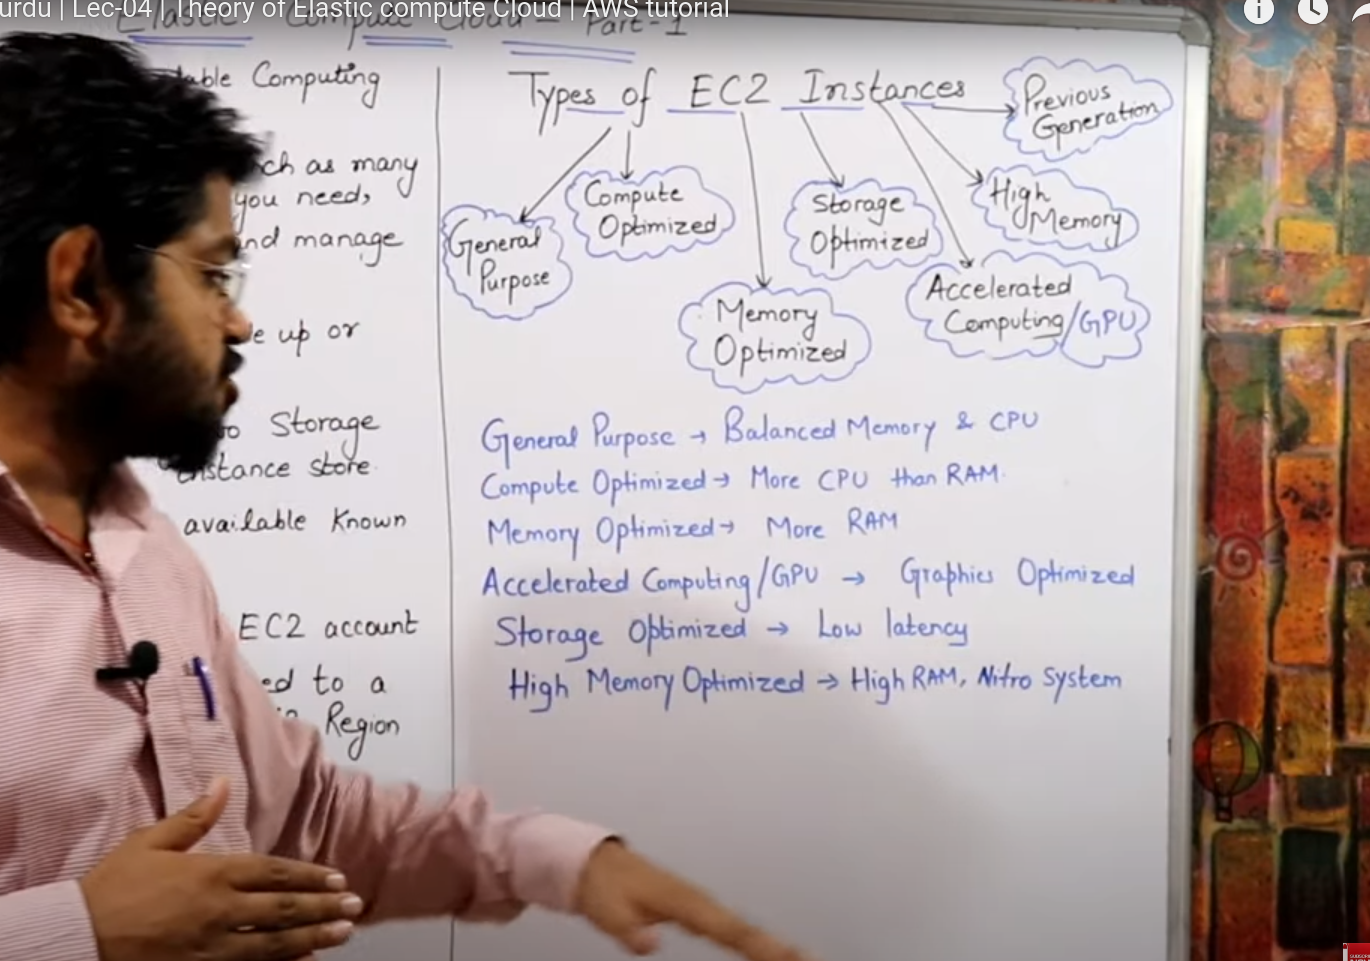 urdu | Lec-04 | Theory of Elastic compute Cloud | AWS tutorial
Elastic Compute Cloud - Part-1
Computing
as many
you need,
and manage
up or
Storage
instance store
available Known
EC2 account
to a
Region
Types of EC2 Instances
Previous
Generation
Compute
Optimized
Storage
Optimized
High
Memory
General
Purpose
Memory
Optimized
Accelerated
Computing/GPU
General Purpose → Balanced Memory & CPU
Compute Optimized → More CPU than RAM.
Memory Optimized → More RAM
Accelerated Computing/GPU → Graphics Optimized
Storage Optimized → Low latency
High Memory Optimized → High RAM, Nitro System